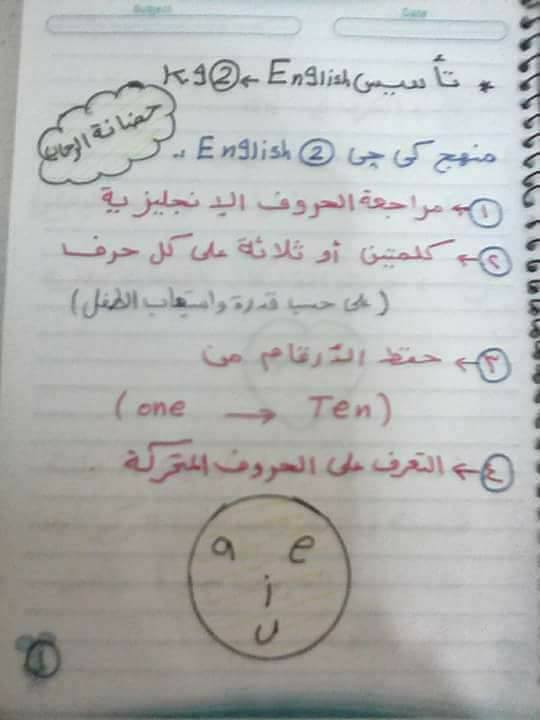 Subject
Date
* تأسيس English ← Kg ②
حضانة الرحاب
منهج كى جى ② English :.
① ← مراجعة الحروف الإنجليزية
② ← كلمتين أو ثلاثة على كل حرف
(على حسب قدرة واستيعاب الطفل)
③ ← حفظ الأرقام من
(one → Ten)
④ ← التعرف على الحروف المتحركة
a e
i
u
1